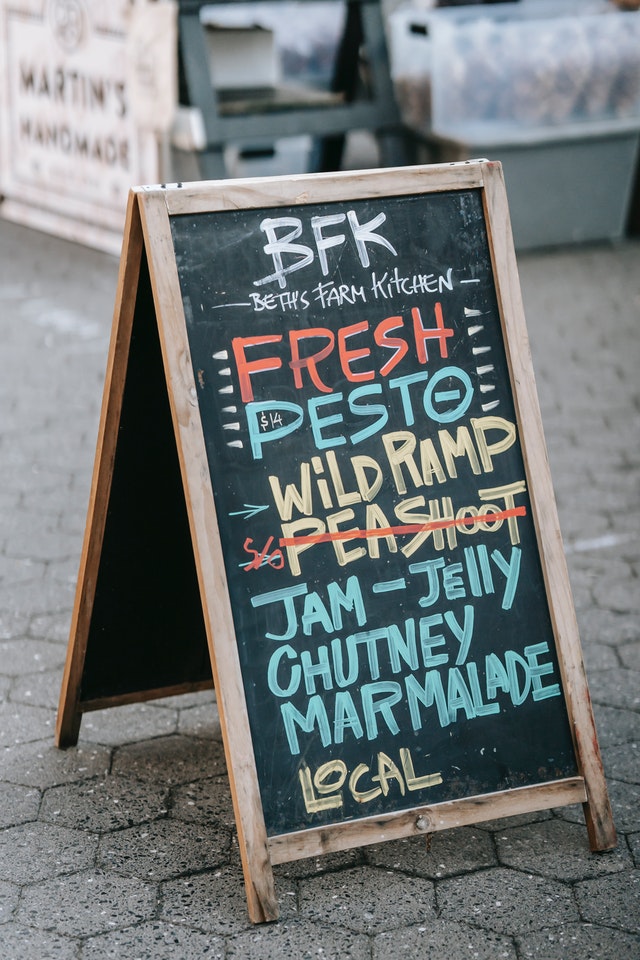 MARTIN'S
HANDMADE
BFK
BETH'S FARM KITCHEN
FRESH
$14 PESTO
WILD RAMP
S/O PEASHOOT
JAM - JELLY
CHUTNEY
MARMALADE
LOCAL